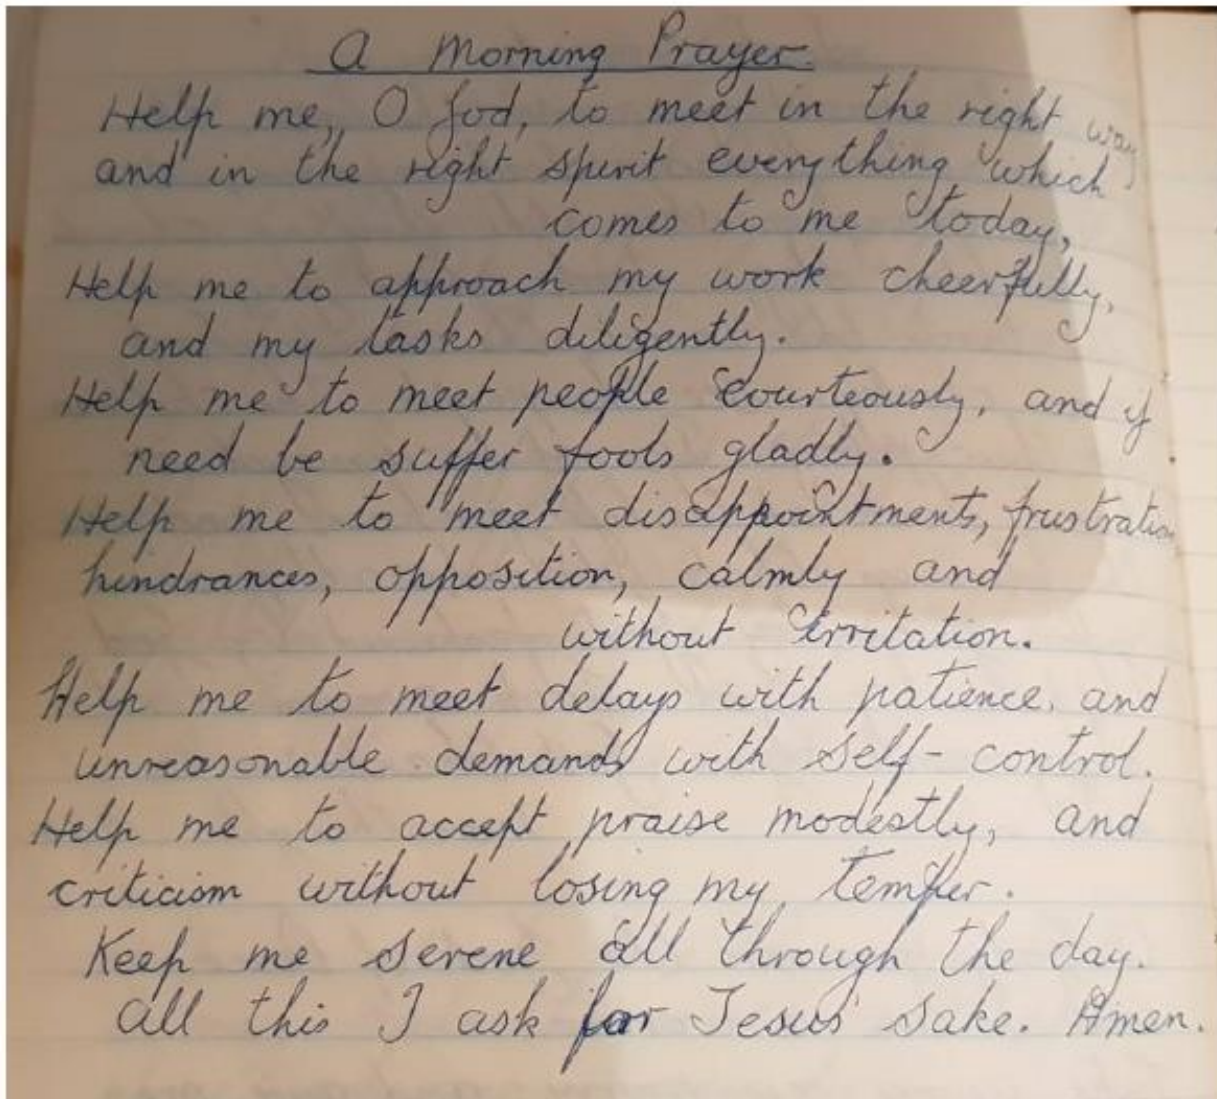 A Morning Prayer.
Help me, O God, to meet in the right way
and in the right spirit everything which
comes to me today,
Help me to approach my work cheerfully,
and my tasks diligently.
Help me to meet people courteously, and if
need be suffer fools gladly.
Help me to meet disappointments, frustration
hindrances, opposition, calmly and
without irritation.
Help me to meet delays with patience, and
unreasonable demands with self-control.
Help me to accept praise modestly, and
criticism without losing my temper.
Keep me serene all through the day.
All this I ask for Jesus' sake. Amen.